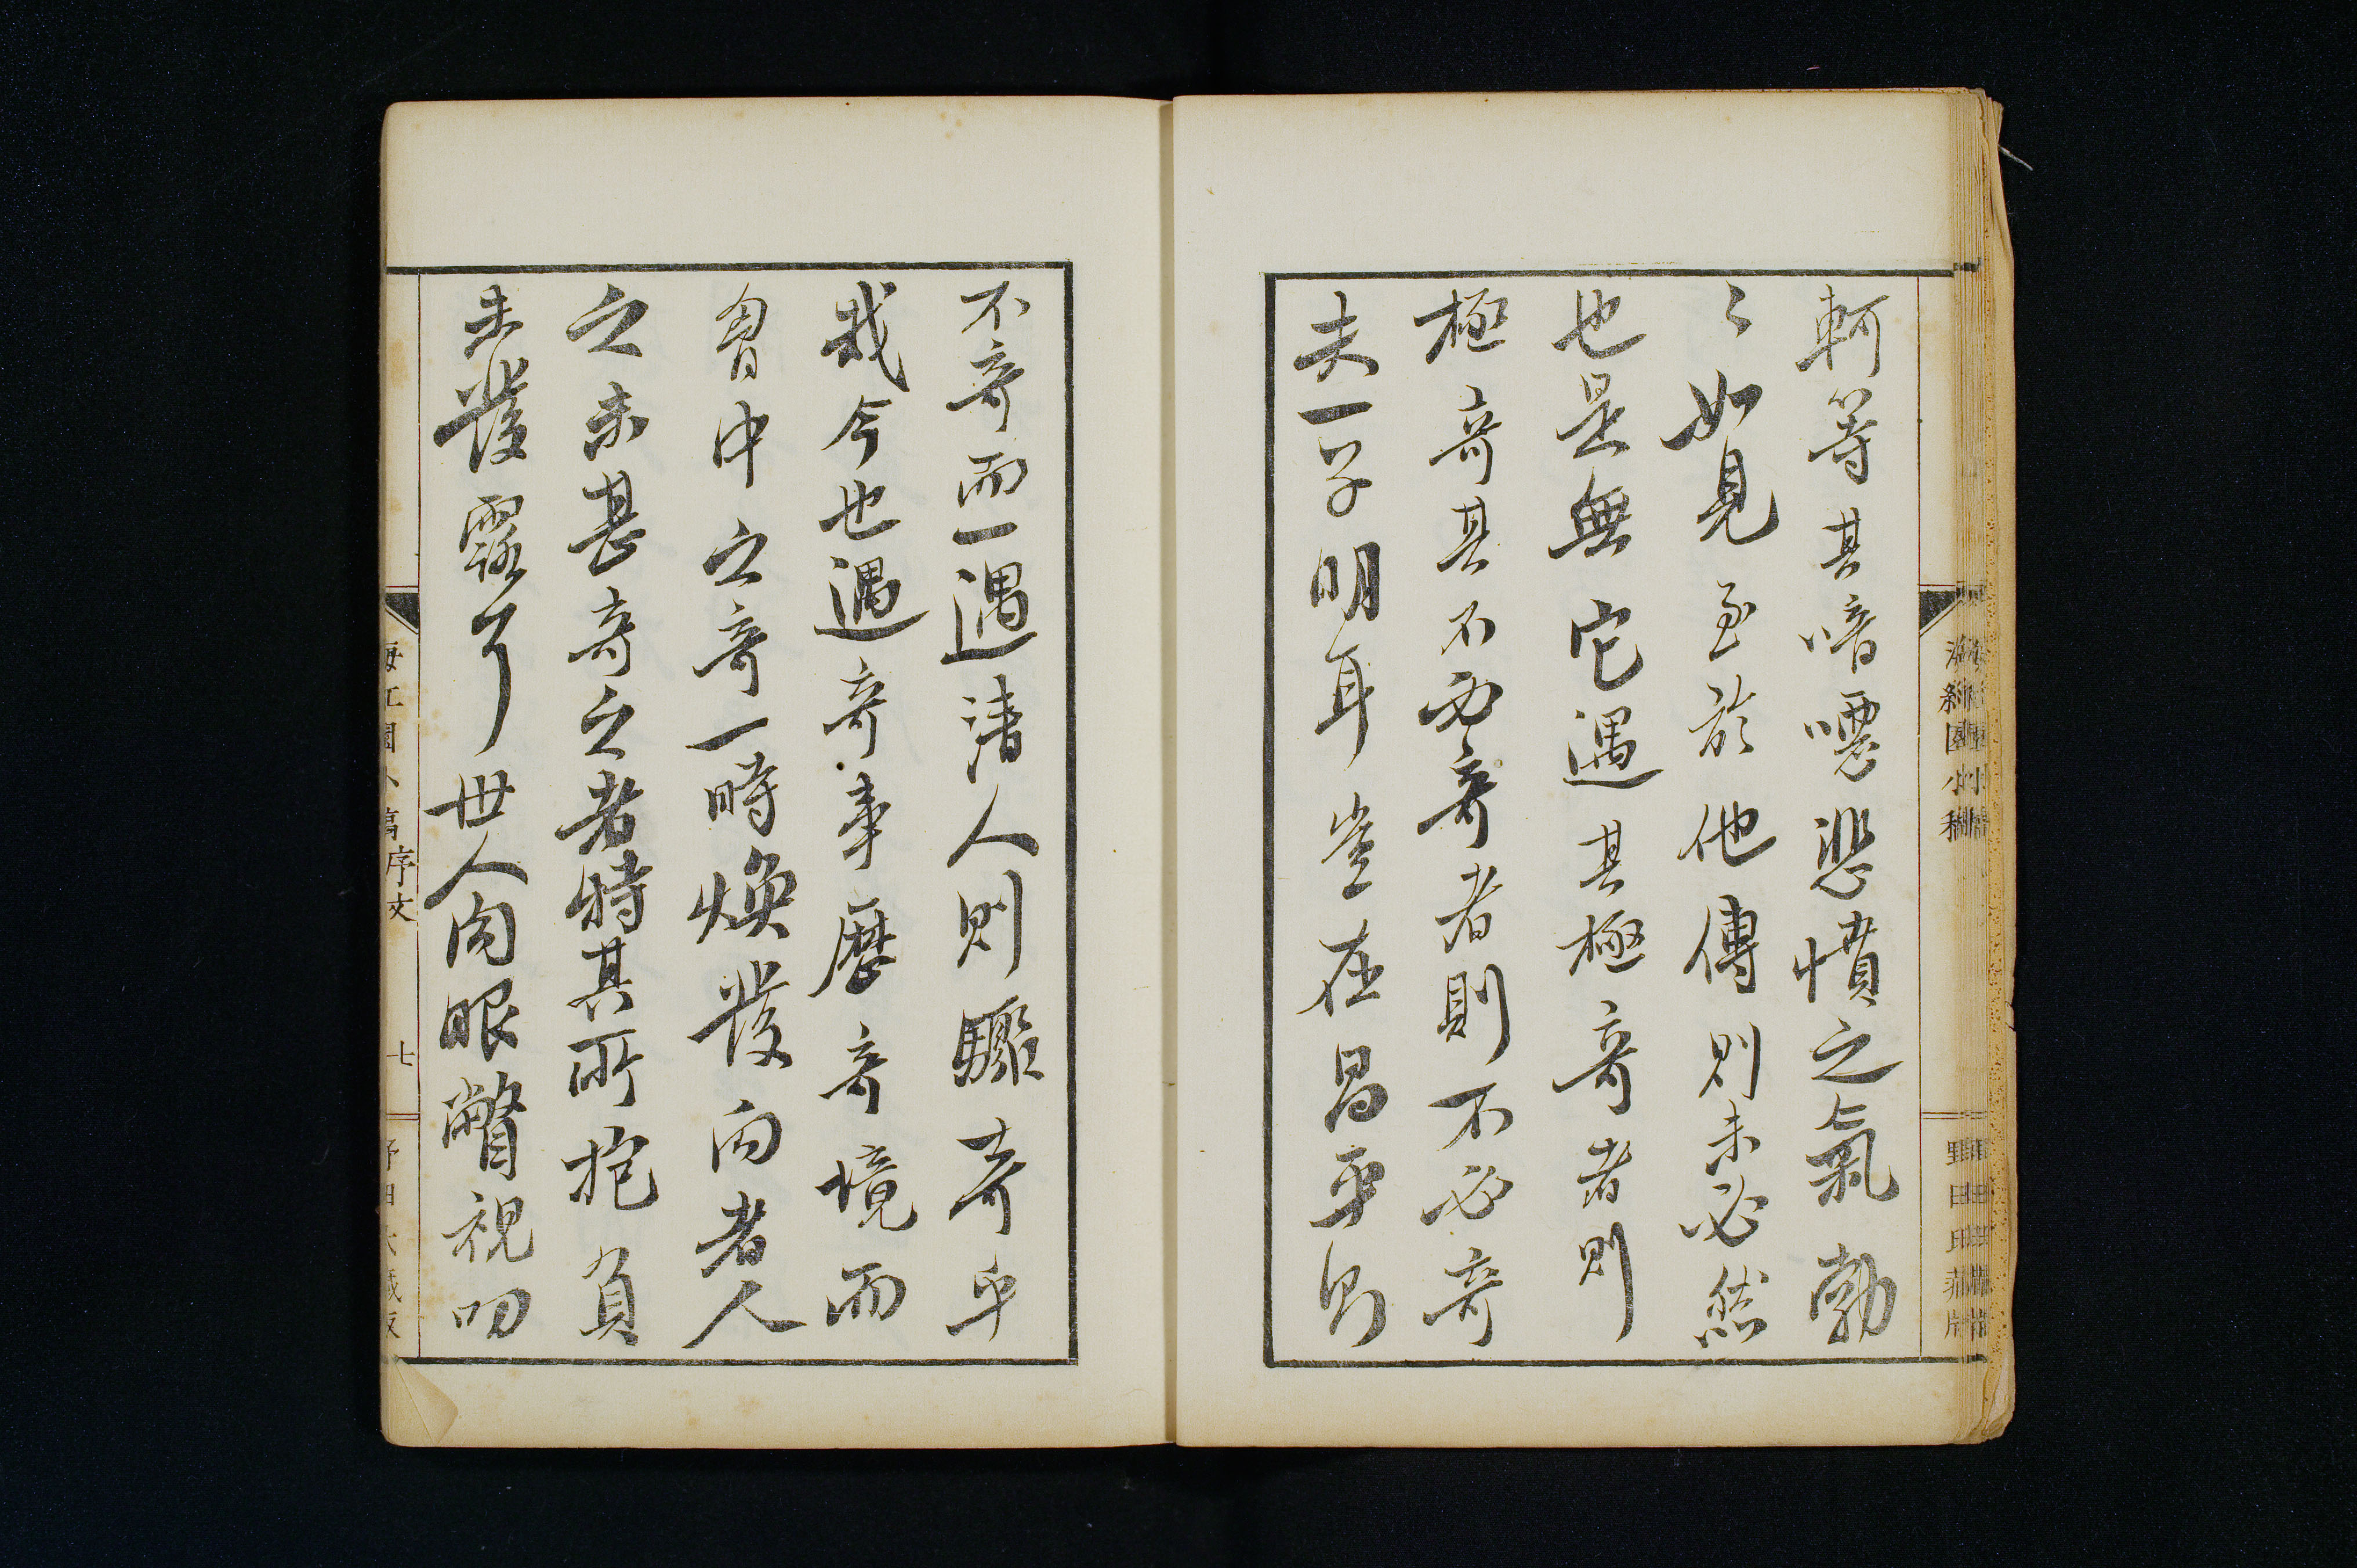 軻等其喑噁悲憤之氣勃
〻如見至於他傳則未必然
也是無它遇其極奇者則
極奇其不必奇者則不必奇
夫一子明耳豈在昌平則
不奇而一遇清人則驟奇乎
哉今也遇奇事歷奇境而
胷中之奇一時煥發向者人
之未甚奇之者特其所抱負
未發露了世人肉眼瞥視叨
海紅園小稿 序文 七
野田氏藏版